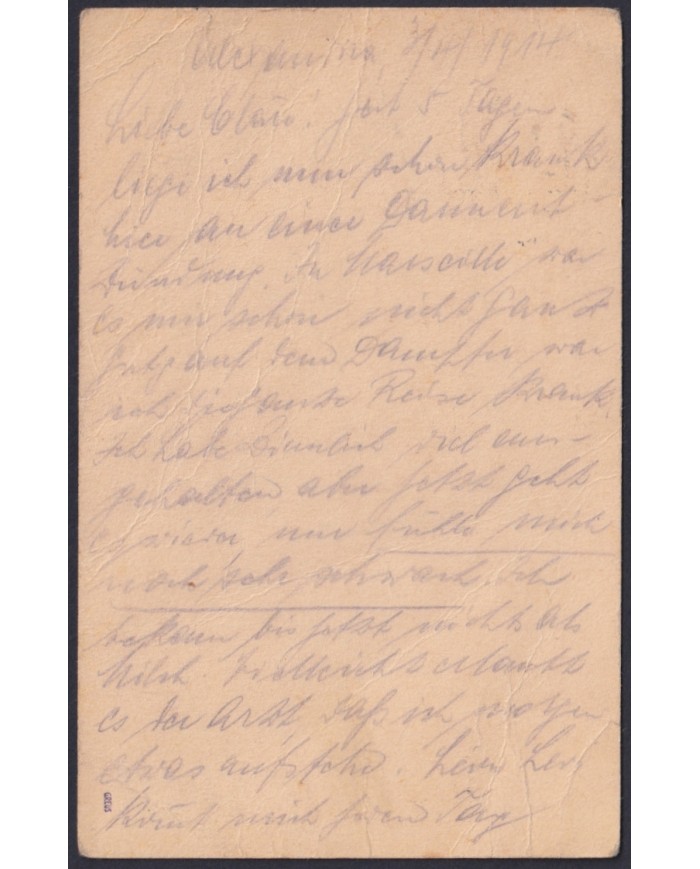 Alexandria, 3/4/1914
Liebe Claire! Seit 5 Tagen
liege ich nun schon krank
hier an einer Darment-
zündung. In Marseille war
es mir schon nicht ganz
gut, auf dem Dampfer war
ich die ganze Reise krank.
Ich habe ziemlich viel aus-
gehalten aber jetzt geht
es wieder, nur fühle mich
noch sehr schwach. Ich
bekam bis jetzt nichts als
Milch. Vielleicht erlaubt
es der Arzt, daß ich morgen
etwas aufstehe. Herr
kommt mich jeden Tag